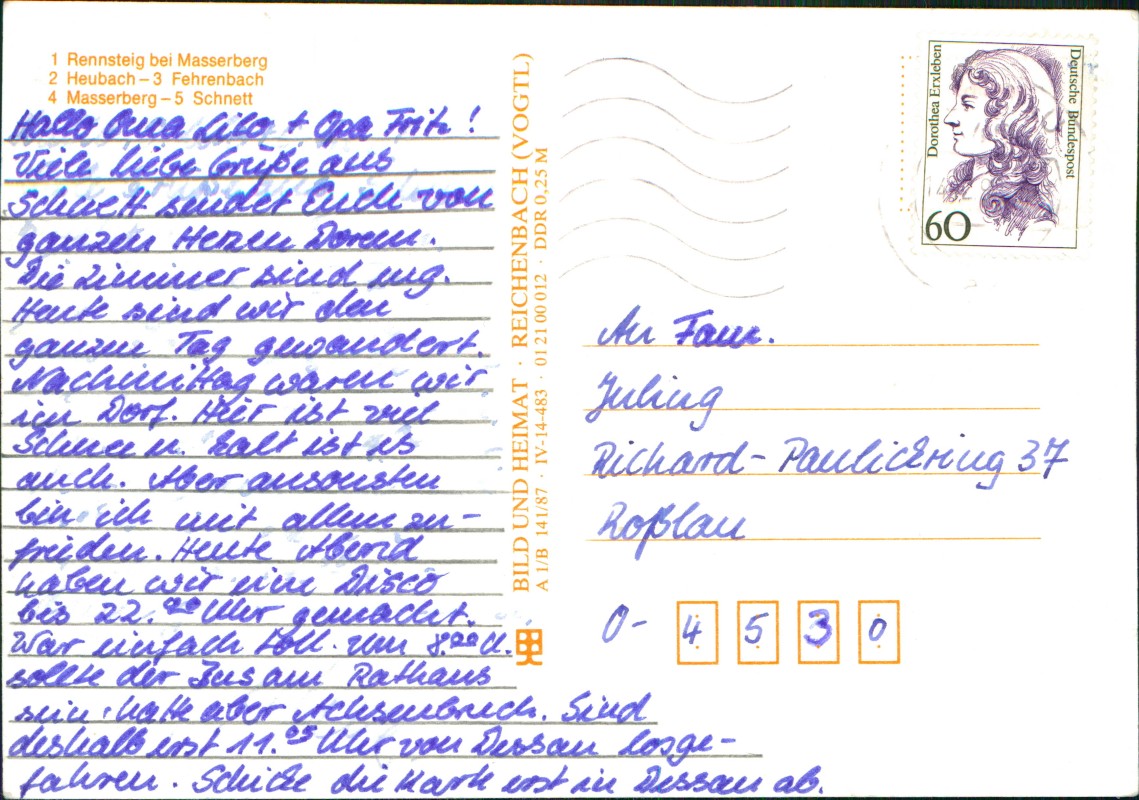 1 Rennsteig bei Masserberg
2 Heubach – 3 Fehrenbach
4 Masserberg – 5 Schnett
Hallo Oma Lilo + Opa Fritz!
Viele liebe Grüße aus
Schnett sendet Euch von
ganzen Herzen Doreen.
Die Zimmer sind eng.
Heute sind wir den
ganzen Tag gewandert.
Nachmittag waren wir
im Dorf. Hier ist viel
Schnee u. kalt ist es
auch. Aber ansonsten
bin ich mit allem zu-
frieden. Heute Abend
haben wir eine Disco
bis 22.00 Uhr gemacht.
War einfach toll. Um 8.00 U.
sollte der Bus am Rathaus
sein, hatte aber Achsenbruch. Sind
deshalb erst 11.05 Uhr von Dessau losge-
fahren. Schicke die Karte erst in Dessau ab.
BILD UND HEIMAT · REICHENBACH (VOGTL)
A 1/B 141/87 · IV-14-483 · 01 21 00 012 · DDR 0,25 M
Dorothea Erxleben
Deutsche Bundespost
60
An Fam.
Juling
Richard-Paulickring 37
Roßlau
O- 4 5 3 0